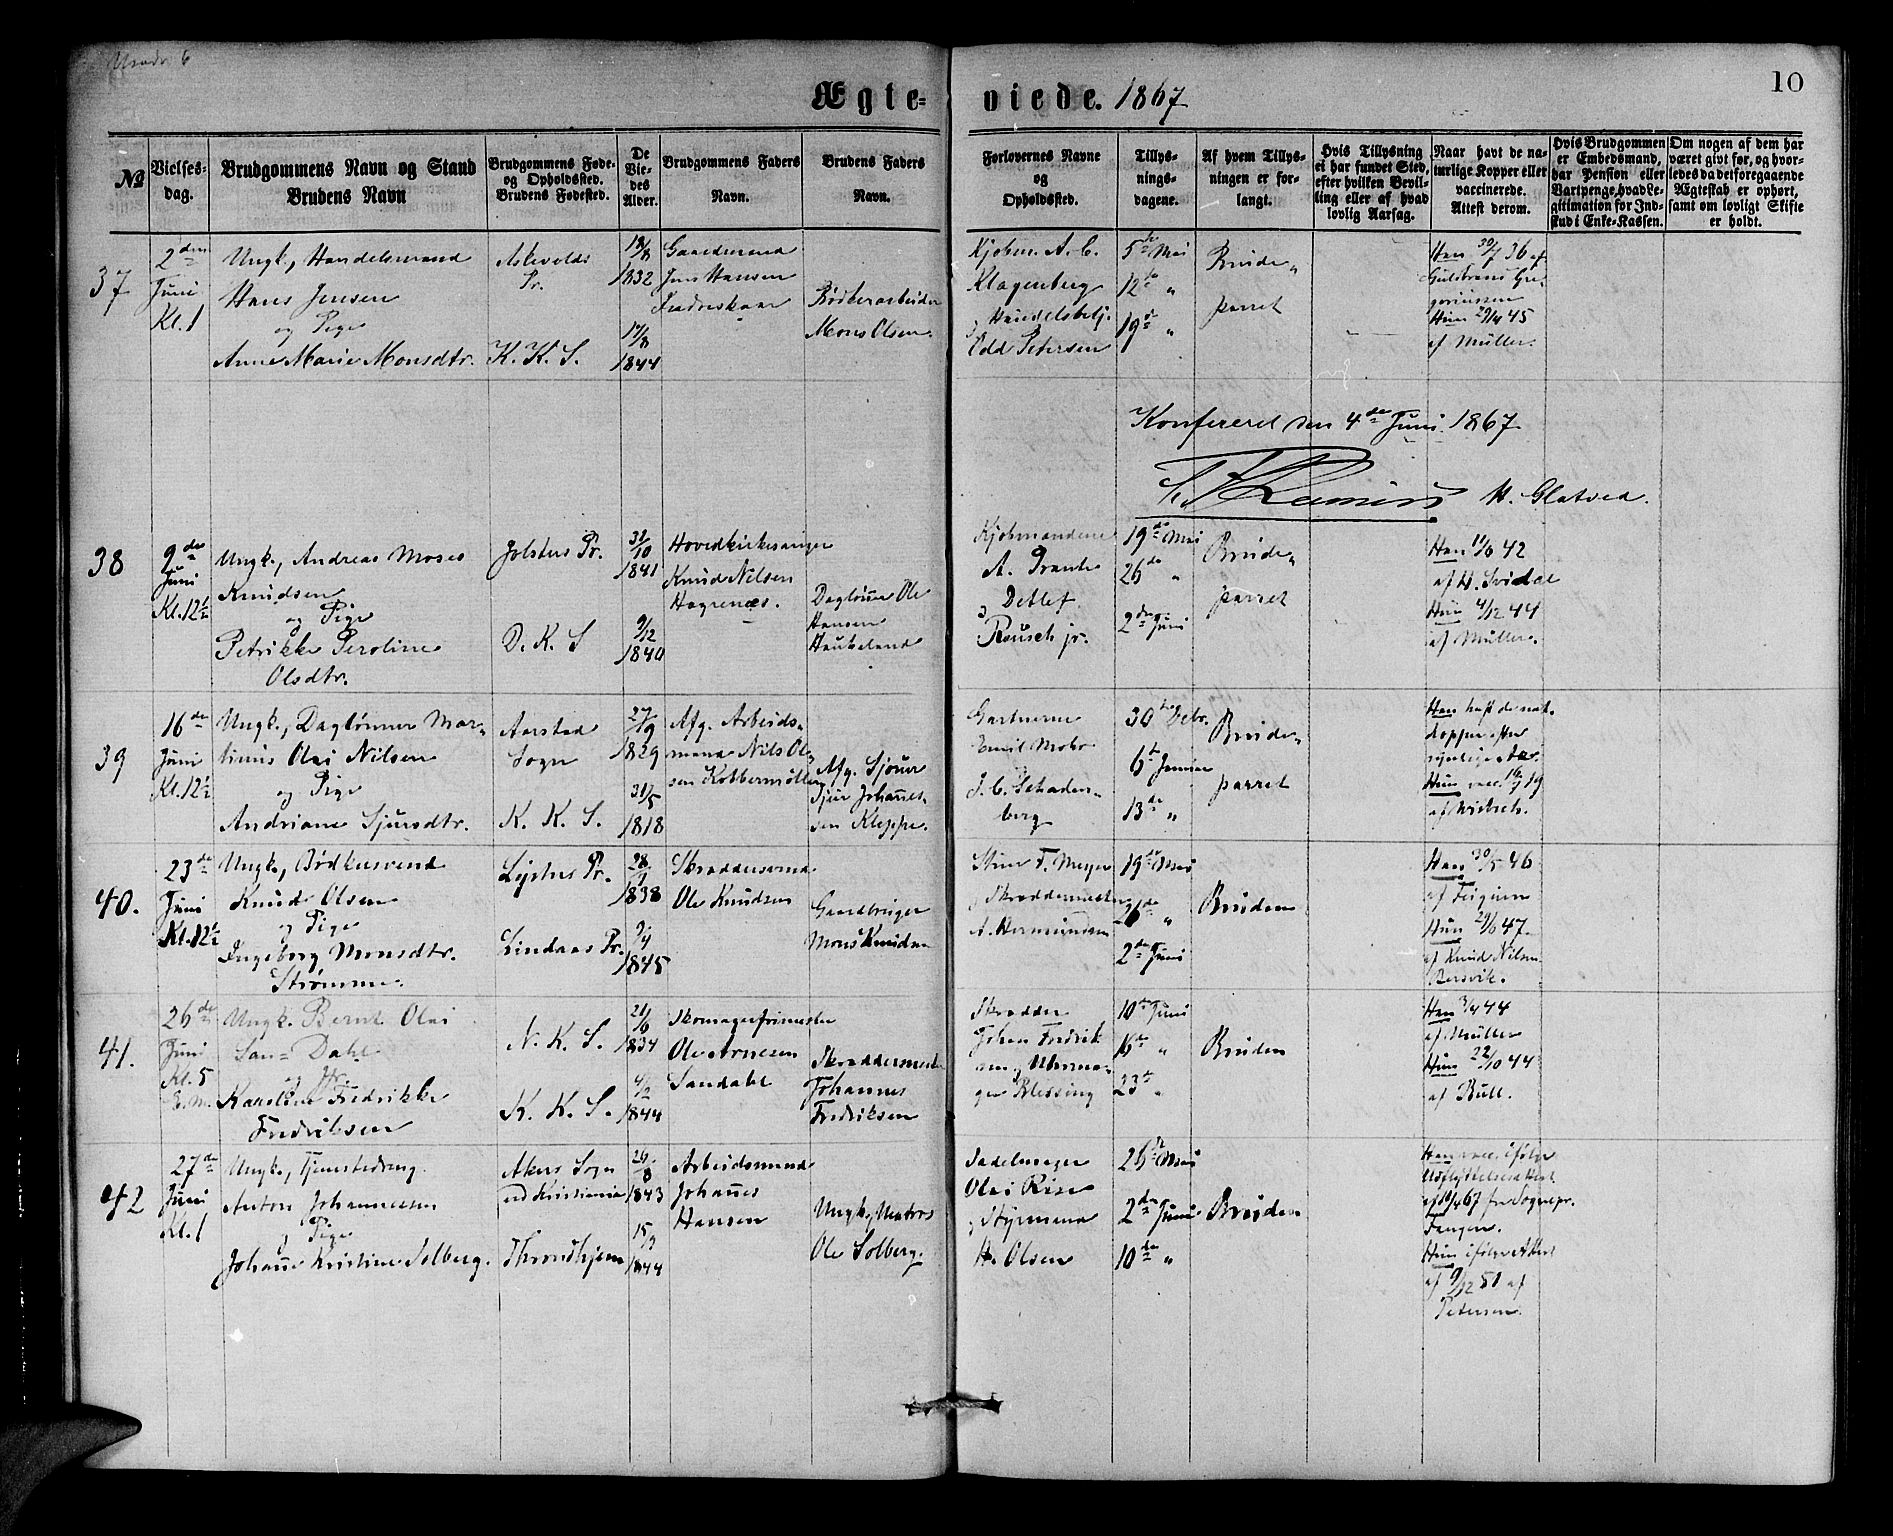 Ægte=
viede. 1867
10
№
Vielses-
dag.
Brudgommens Navn og Stand
Brudens Navn
Brudgommens Føde-
og Opholdssted.
Brudens Fødested.
De
Vie-
des
Alder.
Brudgommens Faders
Navn.
Brudens Faders
Navn.
Forlovernes Navne
og
Opholdssted.
Tillys-
nings-
dagene.
Af hvem Tillys-
ningen er for-
langt.
Hvis Tillysning
ei har fundet Sted,
efter hvilken Bevil-
ling eller af hvad
lovlig Aarsag.
Naar havt de na-
turlige Kopper eller
vaccinerede.
Attest derom.
Hvis Brudgommen
er Embedsmand,
har Pension eller
Vartpenge, hvad Le-
gitimation for Ind-
skud i Enke-Kassen.
Om nogen af dem har
været givt før, og hvor-
ledes da det foregaaende
Ægteskab er ophørt,
samt om lovligt Skifte
er holdt.
37
2den
Juni
Kl. 1
Ungk., Handelsmand
Hans Jensen
og Pige
Anne Marie Monsdtr.
Askevolds
Pr.
K. K. S.
18/8
1832
17/8
1844
Gaardmand
Jens Hansen
Indreskaar
Bødkerarbeider
Mons Olsen.
Kjøbm. A. C.
Klagenberg
Handelsbetj.
Edd Petersen
5te Mai
12te "
19de "
Brude-
parret
Han 30/7 36 af
Guldbrans Gre-
goriussen
Hun 29/4 45
af Müller.
Konfereret den 4de Juni 1867
H. Glatved.
38
9de
Juni
Kl. 12½
Ungk., Andreas Moses
Knudsen
og Pige
Petrikke Peroline
Olsdtr.
Jølsters Pr.
D. K. S
31/10
1841
9/12
1840
Hovedkirkesanger
Knud Nilsen
Høgrenæs.
Dagløner Ole
Hansen
Haukeland
Kjøbmændene
A. Prante
Detlef
Rausch jr.
19de Mai
26de "
2den Juni
Brude-
parret
Han 11/6 42
af H. Svidal
Hun 4/12 44
af Müller.
39
16de
Juni
Kl. 12½
Ungk., Dagløner Mar-
tinus Olai Nilsen
og Pige
Andriane Sjursdtr.
Aarstad
Sogn
K. K. S.
27/9
1829
31/5
1818
Afg. Arbeids-
mand Nils Ol-
sen Kobbermølle
Afg. Sjouer
Sjur Johannes-
sen Kleppe.
Gartnerne
Emil Mohr
J. C. Schaden-
berg
30te Debr.
6te Januar
13de "
Brude-
parret
Han haft de nat.
Kopper efter
synlige Ar.
Hun vacc. 16/9 19
40.
23de
Juni
Kl. 12½
Ungk., Bødkersvend
Knud Olsen
og Pige
Ingeborg Monsdtr.
Strømme.
Lysters Pr.
Lindaas Pr.
28/1
1838
9/4
1845
Skræddersvend
Ole Knudsen
Gaardbruger
Mons Knudsen
F. Meyer
Skræddermester
A. Hermundsen
19de Mai
26de "
2den Juni
Bruden
Han 30/5 46
af Feigum
Hun 29/6 47.
af Knud Nilsen
Bersvik.
41.
26de
Juni
Kl. 5
E. M.
Ungk. Bernt Olai
San= Dahl
og Jfr.
Karoline Fredrikke
Fredriksen
N. K. S.
K. K. S.
21/6
1834
4/2
1844
Skomagerfrimester
Ole Arnesen
Sandahl
Skræddermester
Johannes
Fredriksen
Skrædder
Johan Fredrik
sen og Uhrma-
ger Blessing
10de Juni
16de "
23de "
Bruden
Han 3/4 44
af Müller
Hun 22/10 44
af Bull.
42
27de
Juni
Kl. 1
Ungk., Tjenestedreng
Anton Johannesen
og Pige
Johanne Kristine Solberg.
Akers Sogn
ved Kristiania
Throndhjem
26/8
1843
15/9
1844
Arbeidsmand
Johannes
Hansen
Ungk., Matros
Ole Solberg.
Sadelmager
Olai Riise
og Styrmand
H. Olsen
26de Mai
2den Juni
10de "
Bruden
Han vacc. ifølge
Udflyttelsesattest
af 10/4 67 fra Sognepr.
Fangen.
Hun ifølge Attest
af 9/12 51 af
Petersen.